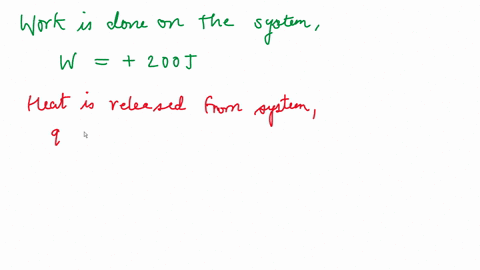 Work is done on the system,
W = + 200J
Heat is released from system,
q